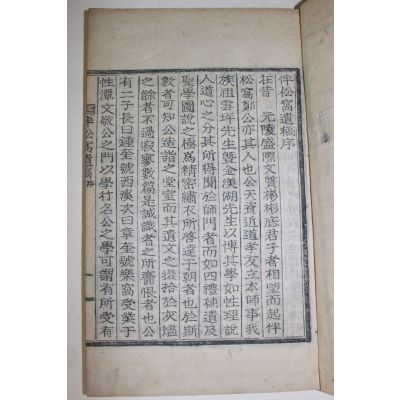 伴松窩遺稿序
在昔 元陵盛際文質彬彬庶君子者相望而起伴
松窩鄭公亦其人也公天資近道孝友立本師事我
族祖雲坪先生曁金渼湖先生以博其學如性理說
人道心之分其所得聞於師門者而如四禮補遺及
聖學圖說之極爲精密繡衣所啓達于朝者也於斯
數者可知公造詣之堂室而其遺文之掇拾於灰燼
之餘者不過寂寥數篇是誠識者之所齎恨者也公
有二子長曰鍾奎號西溪次曰章奎號樂窩受業于
性潭文敬公之門以學行名公之學可謂有所受有
伴松窩遺稿 序